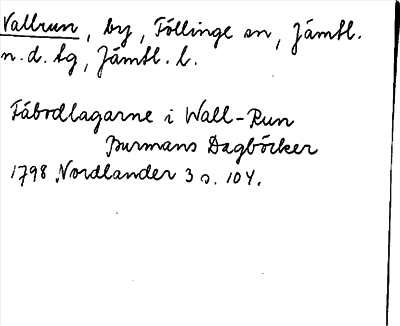 Vallrun, by, Föllinge sn, Jämtl.
n. d. tg, Jämtl. l.
Fäbodlagarne i Wall-Run
Burmans Dagböcker
1798 Nordlander 3 s. 104.